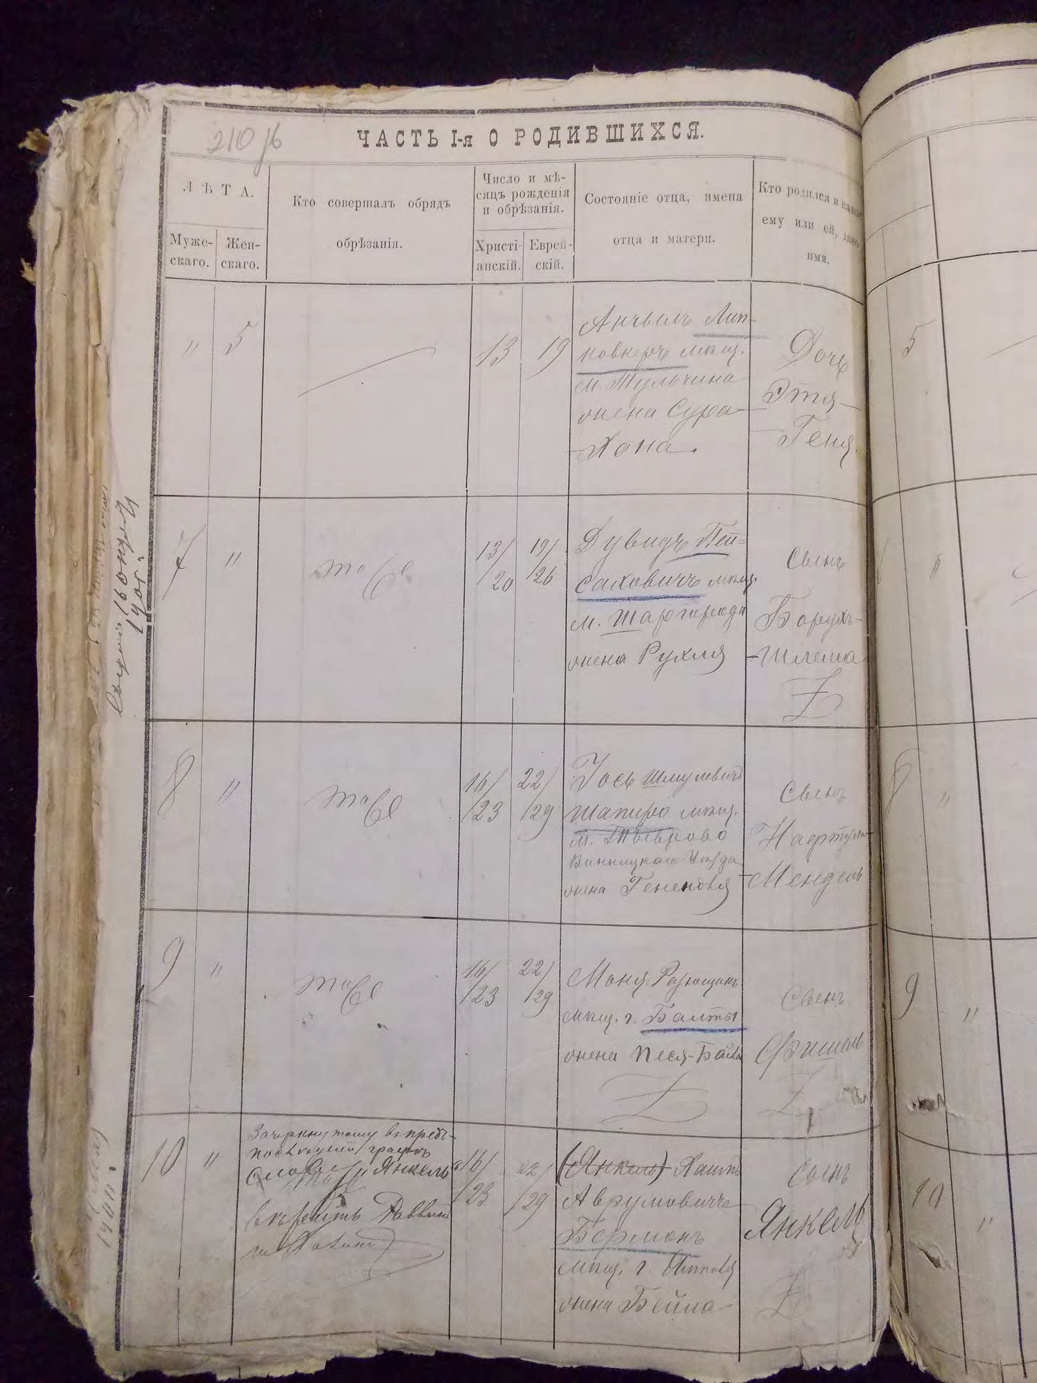 210 об
ЧАСТЬ I-я О РОДИВШИХСЯ.
ЛѢТА.
Муже-
скаго.
Жен-
скаго.
Кто совершалъ обрядъ
обрѣзанія.
Число и мѣ-
сяцъ рожденія
и обрѣзанія.
Христі-
анскій.
Еврей-
скій.
Состояніе отца, имена
отца и матери.
Кто родился и какое
ему или ей, дано
имя.
" 5
13 19
Анчель Лип-
ковкеръ мѣщ.
м. Тульчина
жена Сура-
-Хона.
Дочь
Этля-
-Геня.
5
7 "
тоже
13/20 19/26
Дувидъ Пей-
саховичъ мѣщ.
м. Шаргорода
жена Рухля
Сынъ
Борухъ-
-Шлема
"
8 "
тоже
16/23 22/29
Іось Шмулевичъ
Шапиро мѣщ.
м.
Винницкаго Уѣзда
жена
Сынъ
Нафтула-
-Мендель
8 "
9 "
тоже
16/23 22/29
Моня
мѣщ. г. Балты
жена Песя-Бейла
Сынъ
Фишель
9 "
10 "
Зачеркнутому въ предъ-
графѣ
слово Янкель
вѣрить Раввинъ
16/23 22/29
(Янкель) Хаимъ
Аврумовичъ
Берманъ
мѣщ. г.
жена Бейла
Сынъ
Янкель
10 "